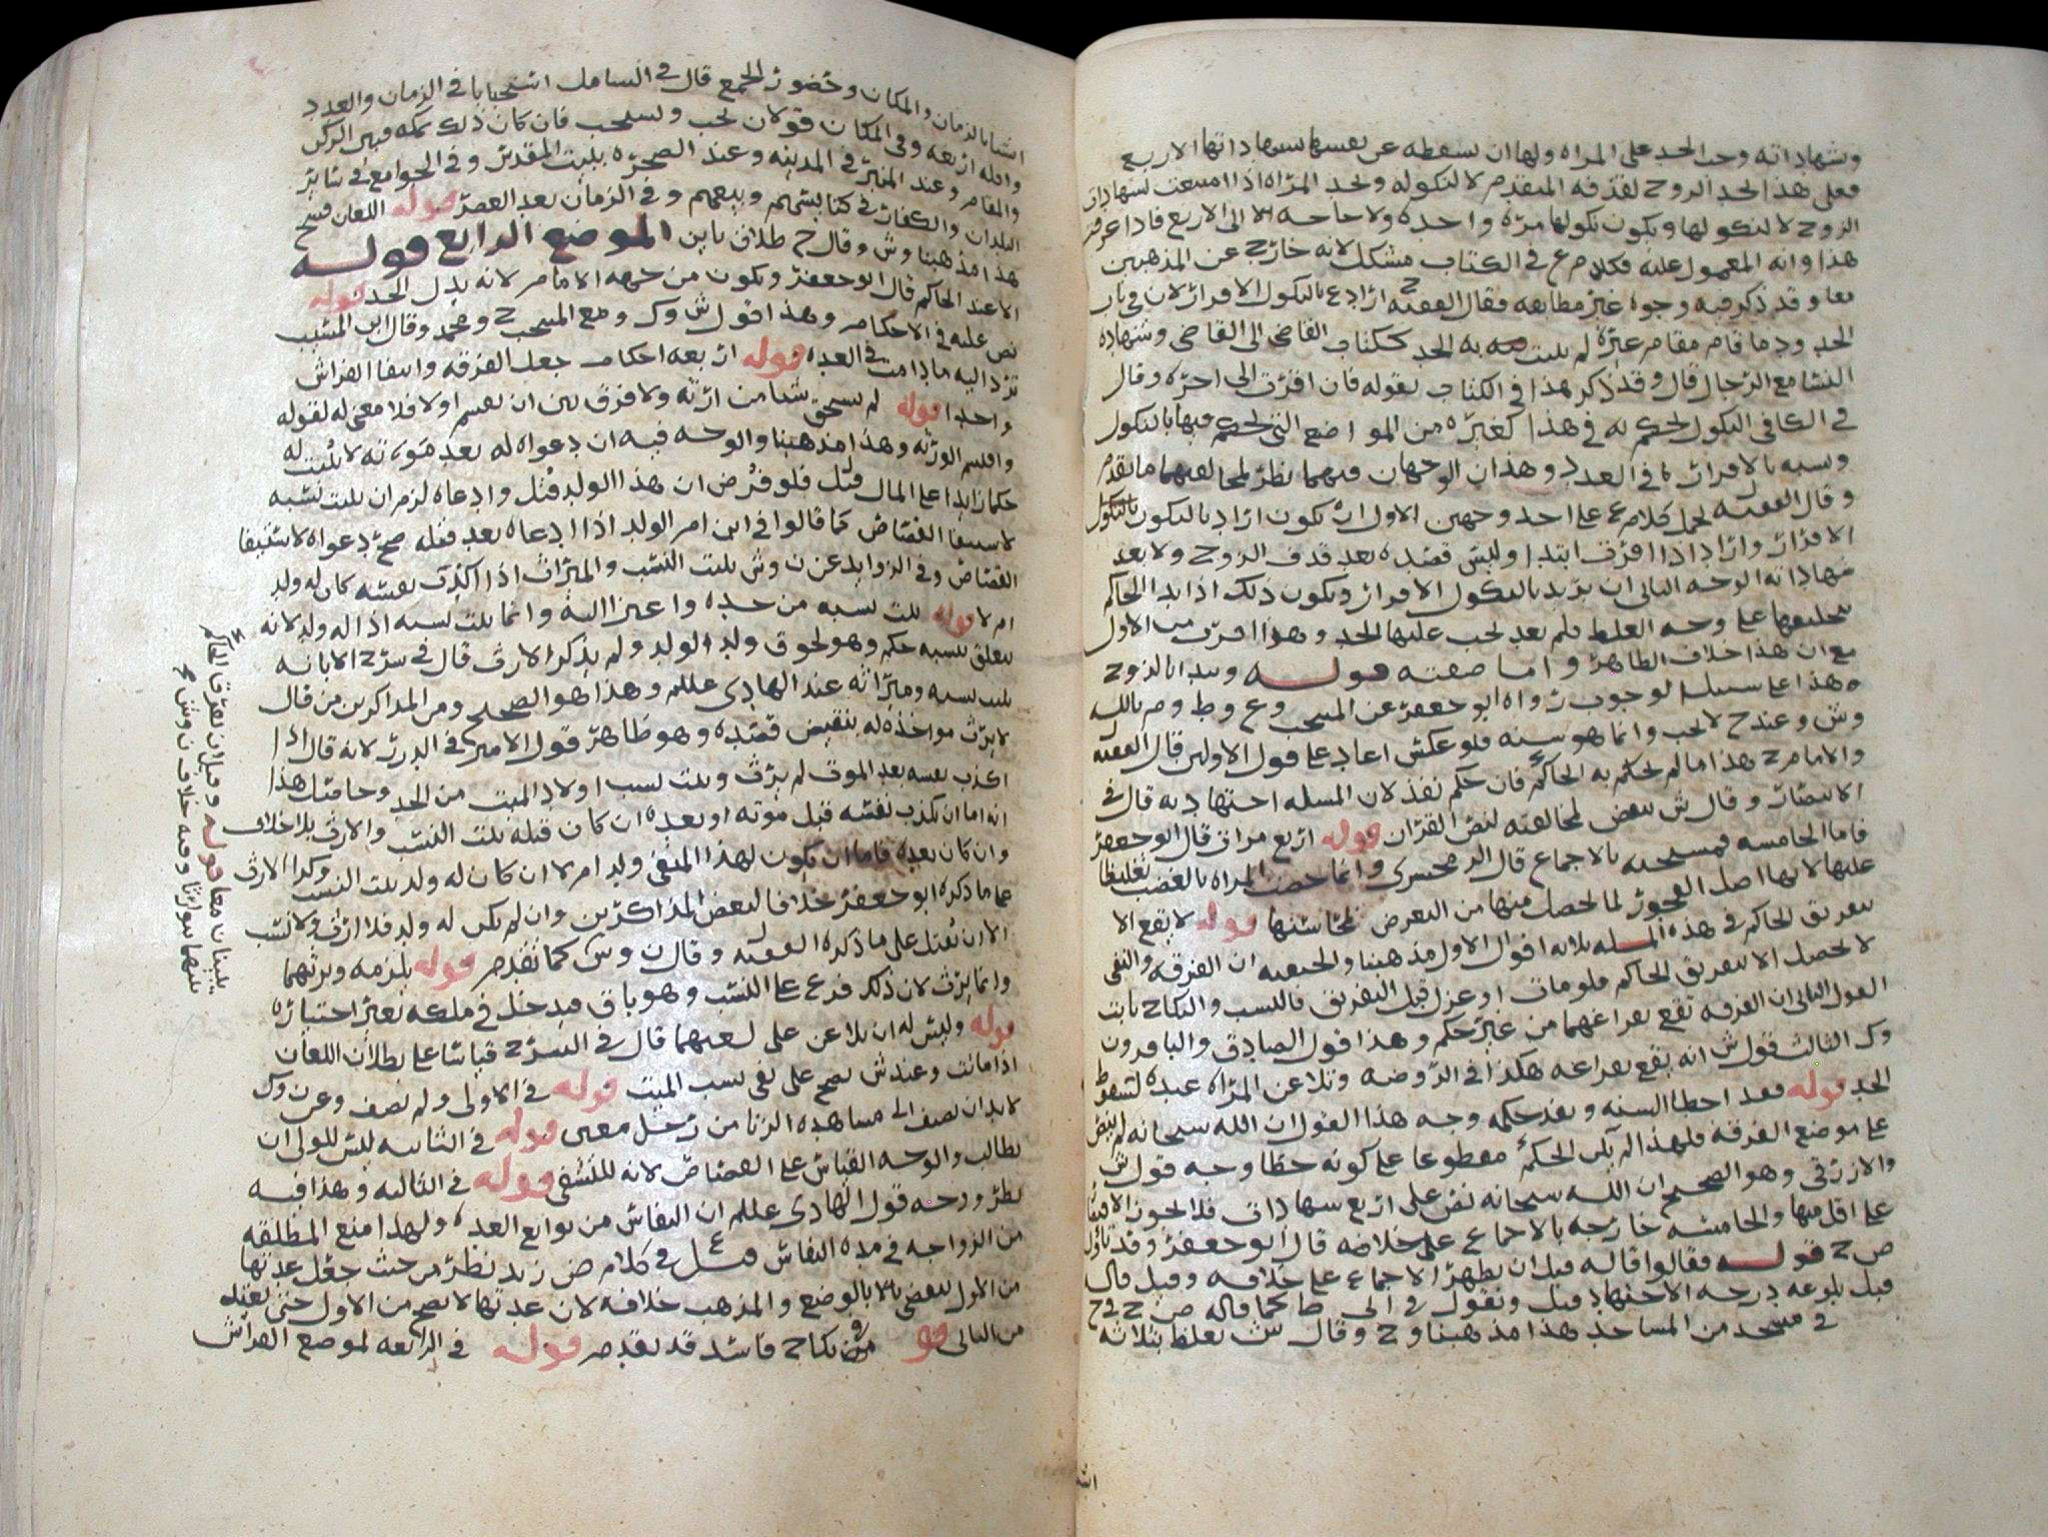 وشهاداته وجب الحد على المراه ولها ان تسقطه عن نفسها بشهاداتها الاربع
فعلى هذا الحد الزوج لقذفه المتقدم لا لنكوله ولحد المراه اذا امتنعت لشهادات
الزوج لا لنكولها ويكون نكولها مره واحده ولا حاجه الى الاربع فاذا عرفت
هذا وانه المعمول عليه فكلام ع في الكتاب مشكل لانه خارج عن المذهبين
معا وقد ذكر فيه وجوه غير مطابقه فقال الفقيه ح اراد ع بالنكول الاقرار لان في باب
الحد ودما قام مقام غيره لم يثبت به الحد ككتاب القاضي الى القاضي وشهاده
النسا مع الرجال قال وقد ذكر هذا في الكتاب بقوله فان اقرت الى اخره وقال
في الكافي النكول لحكم به في هذا كغيره من المواضع التي لحكم فيها بالنكول
وشبه بالاقرار في العدد وهذان الوجهان فيهما نظر لمخالفتهما ما تقدم
وقال الفقيه ل لحمل كلام ع على احد وجهين الاول ان يكون اراد بالنكول
الاقرار واراد اذا اقرت ابتدا وليس قصده بعد قذف الزوج ولا بعد
شهاداته الوجه الثاني ان يريد بالنكول الاقرار ويكون ذلك اذا بدا الحاكم
بتحليفها على وجه الغلط فلم بعد لحب عليها الحد وهذا اقرب من الاول
مع ان هذا خلاف الظاهر واما صفته قوله ويبدا بالزوج
هذا على سبيل الوجوب رواه ابو جعفر عن المنتخب وع وط وم بالله
وش وعند ح لا لحب وانما هو سنه فلو عكس اعاد على قول الاولين قال الفقيه
والامام ح هذا ما لم لحكم به الحاكم فان حكم نفذ لان المسله اجتهاديه قال في
الانتصار وقال ش ينقض لمخالفته لنص القران قوله اربع مرات قال ابو جعفر
فاما الخامسه فمستحبه بالاجماع قال الزمخشري وانما خصت المراه بالغضب تغليظا
عليها لانها اصل الفجور لما لحصل منها من التعرض قوله لا يقع الا
بتفريق الحاكم في هذه المسله ثلاثه اقوال الاول مذهبنا والحنفيه ان الفرقه والنفي
لا لحصل الا بتفريق الحاكم فلو مات او عزل قبل التفريق فالنسب والنكاح ثابت
القول الثاني ان الفرقه تقع بفراغهما من غير حكم وهذا قول الصادق والباقر ون
وك الثالث قول ش انه يقع بفراغه هكذا في الروضه وتلاعن المراه عنده لتسقط
الحد قوله فقد اخطا السنه ونفذ حكمه وجه هذا القول ان الله سبحانه لم ينص
على موضع الفرقه فلهذا لم يكن الحكم مقطوعا على كونه خطا وجه قول ش
والازرقي وهو الصحيح ان الله سبحانه نص على اربع شهادات فلا لحوز الاقتصار
على اقل منها والخامسه خارجه بالاجماع على خلافه قال ابو جعفر وقد
ص ح قوله فقالوا قاله قبل ان يظهر الاجماع على خلافه وقيل قال
قبل بلوغه درجه الاجتهاد قيل ونقول في الى ط كما قاله ص ح
في مسجد من المساجد هذا مذهبنا وح وقال ش يغلظ بثلاثه
اشيا بالزمان والمكان وحضور الجمع قال في الشامل استحبابا في الزمان والعدد
واقله اربعه وفي المكان قولان لحب ويستحب فان كان ذلك بمكه فبين الركن
والمقام وعند المنبر في المدينه وعند الصخره ببيت المقدس وفي الجوامع في سائر
البلدان والكفار في كنايسهم وبيعهم وفي الزمان بعد العصر قوله اللعان فسخ
هذا مذهبنا وش وقال ح طلاق باين الموضع الرابع قوله
الا عند الحاكم قال ابو جعفر ويكون من جهه الامام لانه بدل الحد قوله
نص عليه في الاحكام وهذا قول ش وك ومع المنتخب ح ومحمد وقال ابن المسيب
ترد اليه ما دامت في العده قوله اربعه احكام جعل الفرقه وانتفا الفراش
واحدا قوله لم يستحق شيا من ارثه ولا فرق بين ان يقسم اولا فلا معنى له لقوله
واقتسم الورثه وهذا مذهبنا والوجه فيه ان دعواه له بعد موته لا يثبت له
حكما زايدا على المال قيل فلو فرض ان هذا الولد قتل وادعاه لزم ان يثبت نسبه
لاستيفا القصاص كما قالوا في ابن ام الولد اذا ادعاه بعد قتله صح دعواه لاستيفا
القصاص وفي الزوايد عن ن وش يثبت النسب والميراث اذا اكذب نفسه كان له ولد
ام لا قوله يثبت نسبه من جده وانما يثبت نسبه اذا له ولد لانه
يتعلق بنسبه حكم وهو لحوق ولد الولد ولم يذكر الارث قال في شرح الابانه
يثبت نسبه وميراثه عند الهادي علليم وهذا هو الصحيح ومن المذاكرين من قال
لا يرث مواخذه له بنقيض قصده وهو ظاهر قول الامير في الدرر لانه قال اذا
اكذب نفسه بعد الموت لم يرث ويثبت نسب اولاد الميت من الجد وحاصل هذا
انه اما ان يكذب نفسه قبل موته او بعده ان كان قبله يثبت النسب والارث بلا خلاف
وان كان بعده فاما ان يكون لهذا المنفي ولد ام لا ان كان له ولد يثبت النسب وكذا الارث
على ما ذكره ابو جعفر خلافا لبعض المذاكرين وان لم يكن له ولد فلا ارث ولا نسب
الا ان يقتل على ما ذكره الفقيه ل وقال ن وش كما تقدم قوله يلزمه ويرثهما
وانما يرث لان ذلك فرع على النسب وهو باق فيدخل في ملكه بغير اختياره
قوله وليس له ان يلاعن على لعنهما قال في الشرح قياسا على بطلان اللعان
اذا ماتت وعند ش يصح على نفي نسب الميت قوله في الاولى ولم يصف وعن وك
لا بد ان يصف الى مشاهده الزنا من رجل معين قوله في الثانيه ليس للولي ان
يطالب والوجه القياس على القصاص لانه للتشفي قوله في الثالثه وهذا فيه
نظر وجه قول الهادي علليم ان النفاس من توابع العده ولهذا منع المطلقه
من الزواجه في مده النفاس قيل ع في كلام ض زيد نظر من حيث جعل عدتها
من الاول تنقضي بالوضع والمذهب خلافه لان عدتها لا تصح من الاول حتى تعتد
من الثاني قو نكاح فاسد قد تقدم قوله في الرابعه لموضع الفراش
يثبتان معا قوله وقبل ان يفرق الحاكم
بينهما يتوارثا وفيه خلاف ن وش